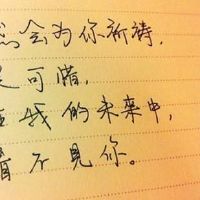 会为你祈祷，
可惜，
我的未来中，
看不見你。